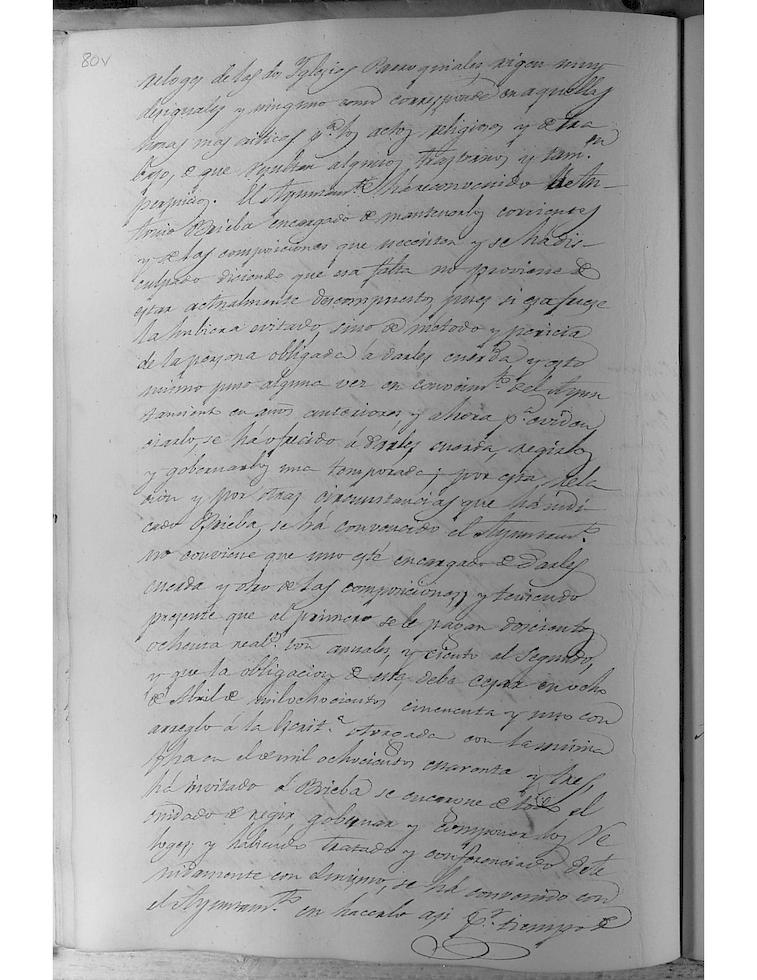 80v
relogs de las dos Iglesias Parroquiales rigen muy
desiguales y ninguno como corresponde en aquellas
horas mas criticas p.ª los actos religiosos y de tra
bajo, de que resultan algunos trastornos y tam.n
perjuicios. El Ayuntam.to ha reconvenido á An-
tonio Brieba encargado de mantenerlos corrientes
y de las composiciones que necesiten y se ha dis-
culpado diciendo que esa falta no proviene de
estar actualmente descompuestos pues si esa fuese
la hubiera evitado, sino de metodo y pericia
de la persona obligada á darles cuerda y esto
mismo puso alguna vez en conocim.to del Ayun
tamiento en años anteriores y ahora p.ª eviden
ciarlo, se há ofrecido á darles cuerda, regirlos
y gobernarlos una temporada; por esta rela
cion y por otras circunstancias que há indi
cado Brieba, se ha convencido el Ayuntam.to
no conviene que uno esté encargado de darles
cuerda y otro de las composiciones, y teniendo
presente que al primero se le pagan doscientos
ochenta real.s von anuales, y ciento al segundo,
y que la obligacion de este, deba cesar en ocho
de Abril de mil ochocientos cincuenta y uno con
arreglo á la Escrit.ª otorgada con la misma
fha en el de mil ochocientos cuarenta y tres,
há invitado á Brieba se encargue de todo el
cuidado de regir, gobernar y componer los Re
loges; y habiendo tratado y conferenciado dete
nidamente con el mismo, se há convenido con
el Ayuntam.to en hacerlo asi p.r tiempo de